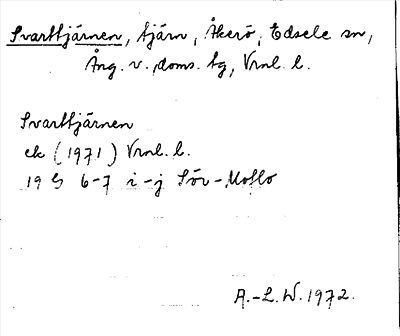 Svarttjärnen, tjärn, Åkerö, Edsele sn,
Ång. v. doms. tg, Vrnl. l.
Svarttjärnen
ek (1971) Vrnl. l.
19 G 6-7 i-j Sör-Moflo
A.-L. W. 1972.